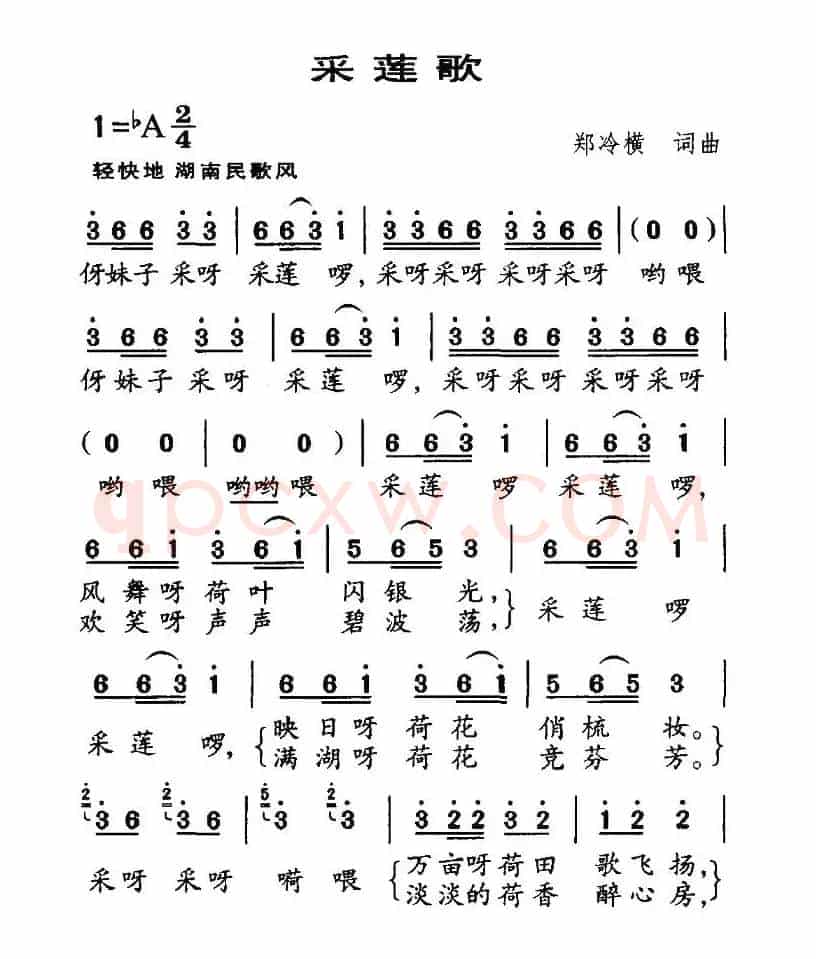 采莲歌
1=♭A 2/4
郑冷横 词曲
轻快地 湖南民歌风
3 6 6 3 3 | 6 6 3 1 | 3 3 6 6 3 3 6 6 | (0 0) |
伢妹子 采呀 采莲 啰, 采呀采呀 采呀采呀 哟喂
3 6 6 3 3 | 6 6 3 1 | 3 3 6 6 3 3 6 6 |
伢妹子 采呀 采莲 啰, 采呀采呀 采呀采呀
(0 0 | 0 0) | 6 6 3 1 | 6 6 3 1 |
哟喂 哟哟喂 采莲 啰 采莲 啰,
qpcxw.COM
6 6 1 3 6 1 | 5 6 5 3 | 6 6 3 1 |
风舞呀荷叶 闪银 光,} 采莲 啰
欢笑呀声声 碧波 荡,
6 6 3 1 | 6 6 1 3 6 1 | 5 6 5 3 |
采莲 啰, {映日呀荷花 俏梳 妆。}
满湖呀荷花 竞芬 芳。
2 3 6 2 3 6 | 5 3 2 3 | 3 2 2 3 2 | 1 2 2 |
采呀 采呀 嗬 喂 {万亩呀荷田 歌飞扬,}
淡淡的荷香 醉心房,